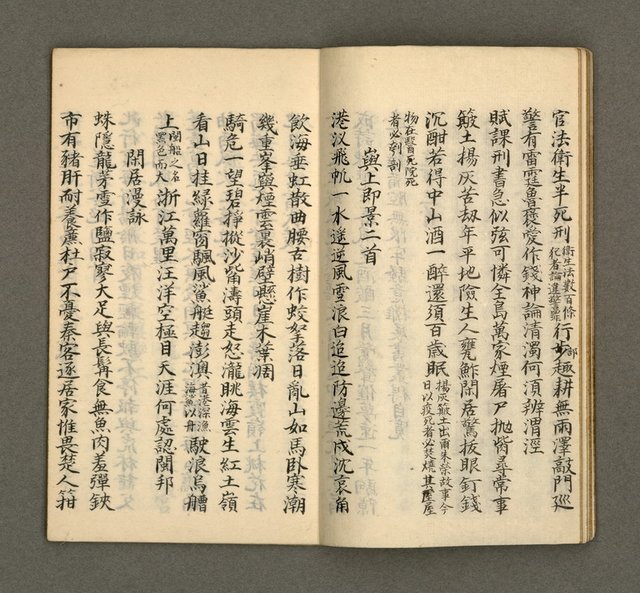 官法衛生半死刑衛生法數百條犯者論違警罪行部趣耕無雨澤敲門廵
警有雷霆魯褒愛作錢神論清濁何須辨渭涇
賦課刑書急似弦可憐全島萬家煙屠尸拋骴尋常事
簸土揚灰苦劫年平地險生人甕鮓閑居驚拔眼釘錢
沉酣若得中山酒一醉還須百歲眠揚灰簸土出南朱榮故事今日以疫死者必焚燬其屋
物在醫院死者必刳剖
嶼上即景二首
港汊飛帆一水遙逆風雪浪白迢迢防邊荒戍沈哀角
飲海垂虹散曲腰古樹作蛟拏落日亂山如馬臥寒潮
幾重峯嶼煙雲裏峭壁懸崖木葉凋
騎危一望碧掙摐沙觜濤頭走怒瀧眺海雲生紅土嶺
看山日挂綠離窗颿風鯊艇趨澎澳者港深漁海鯊以舟駛浪烏艚
上閩船之名黑色而大浙江萬里汪洋空極目天涯何處認閩邦
閑居漫詠
蛛隱龍茅雪作鹽寂寥大足與長髯食無魚肉羞彈鋏
市有豬肝耐養廉杜戸不憂秦客逐居家惟畏楚人箝